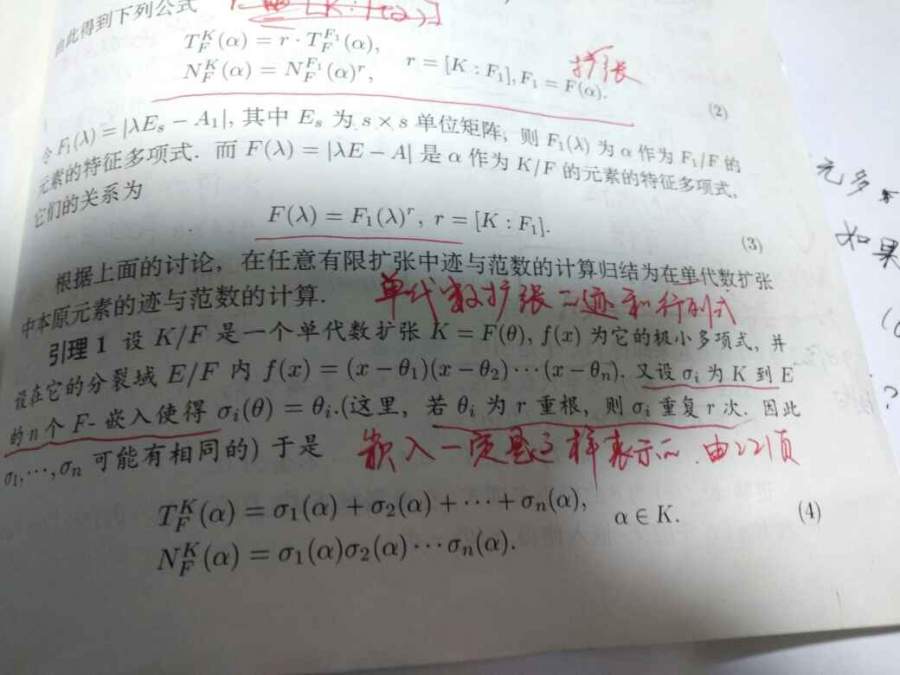 此得到下列公式
T_F^K(α) = r · T_F^{F₁}(α),
N_F^K(α) = N_F^{F₁}(α)^r, r = [K : F₁], F₁ = F(α).
扩张
(2)
令 F₁(λ) = |λE_s − A₁|, 其中 E_s 为 s × s 单位矩阵, 则 F₁(λ) 为 α 作为 F₁/F 的
元素的特征多项式. 而 F(λ) = |λE − A| 是 α 作为 K/F 的元素的特征多项式,
它们的关系为
F(λ) = F₁(λ)^r, r = [K : F₁].
(3)
根据上面的讨论, 在任意有限扩张中迹与范数的计算归结为在单代数扩张
中本原元素的迹与范数的计算.
单代数扩张 迹和行列式
引理 1 设 K/F 是一个单代数扩张 K = F(θ), f(x) 为它的极小多项式, 并
设在它的分裂域 E/F 内 f(x) = (x − θ₁)(x − θ₂) ··· (x − θₙ). 又设 σᵢ 为 K 到 E
的 n 个 F- 嵌入使得 σᵢ(θ) = θᵢ.(这里, 若 θᵢ 为 r 重根, 则 σᵢ 重复 r 次. 因此
σ₁, ··· , σₙ 可能有相同的) 于是
嵌入一定是这样表示的. 由221页
T_F^K(α) = σ₁(α) + σ₂(α) + ··· + σₙ(α),
α ∈ K.
(4)
N_F^K(α) = σ₁(α)σ₂(α) ··· σₙ(α).
元多
如果
?